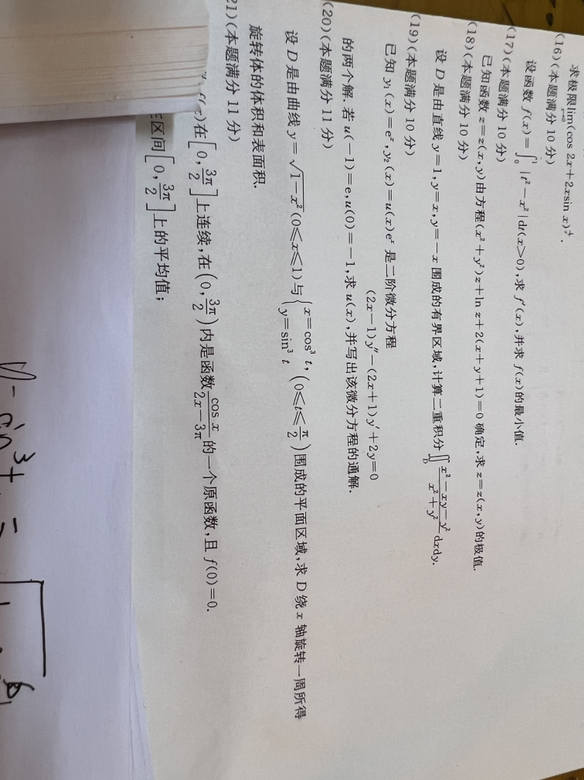 求极限lim(cos 2x+2xsin x)
x→0
(16)(本题满分 10 分)
设函数 f(x)=∫₀¹|t²-x²|dt(x>0),求 f′(x),并求 f(x)的最小值.
(17)(本题满分 10 分)
已知函数 z=z(x,y)由方程(x²+y²)z+ln z+2(x+y+1)=0 确定,求 z=z(x,y)的极值.
(18)(本题满分 10 分)
设 D 是由直线 y=1,y=x,y=-x 围成的有界区域,计算二重积分∬_D (x²-xy-y²)/(x²+y²) dxdy.
(19)(本题满分 10 分)
已知 y₁(x)=eˣ,y₂(x)=u(x)eˣ 是二阶微分方程
(2x-1)y″-(2x+1)y′+2y=0
的两个解.若 u(-1)=e,u(0)=-1,求 u(x),并写出该微分方程的通解.
(20)(本题满分 11 分)
设 D 是由曲线 y=√(1-x²)(0≤x≤1)与{x=cos³ t, y=sin³ t (0≤t≤π/2)围成的平面区域,求 D 绕 x 轴旋转一周所得
旋转体的体积和表面积.
21)(本题满分 11 分)
f(x)在[0,3π/2]上连续,在(0,3π/2)内是函数 cos x/(2x-3π) 的一个原函数,且 f(0)=0.
区间[0,3π/2]上的平均值;